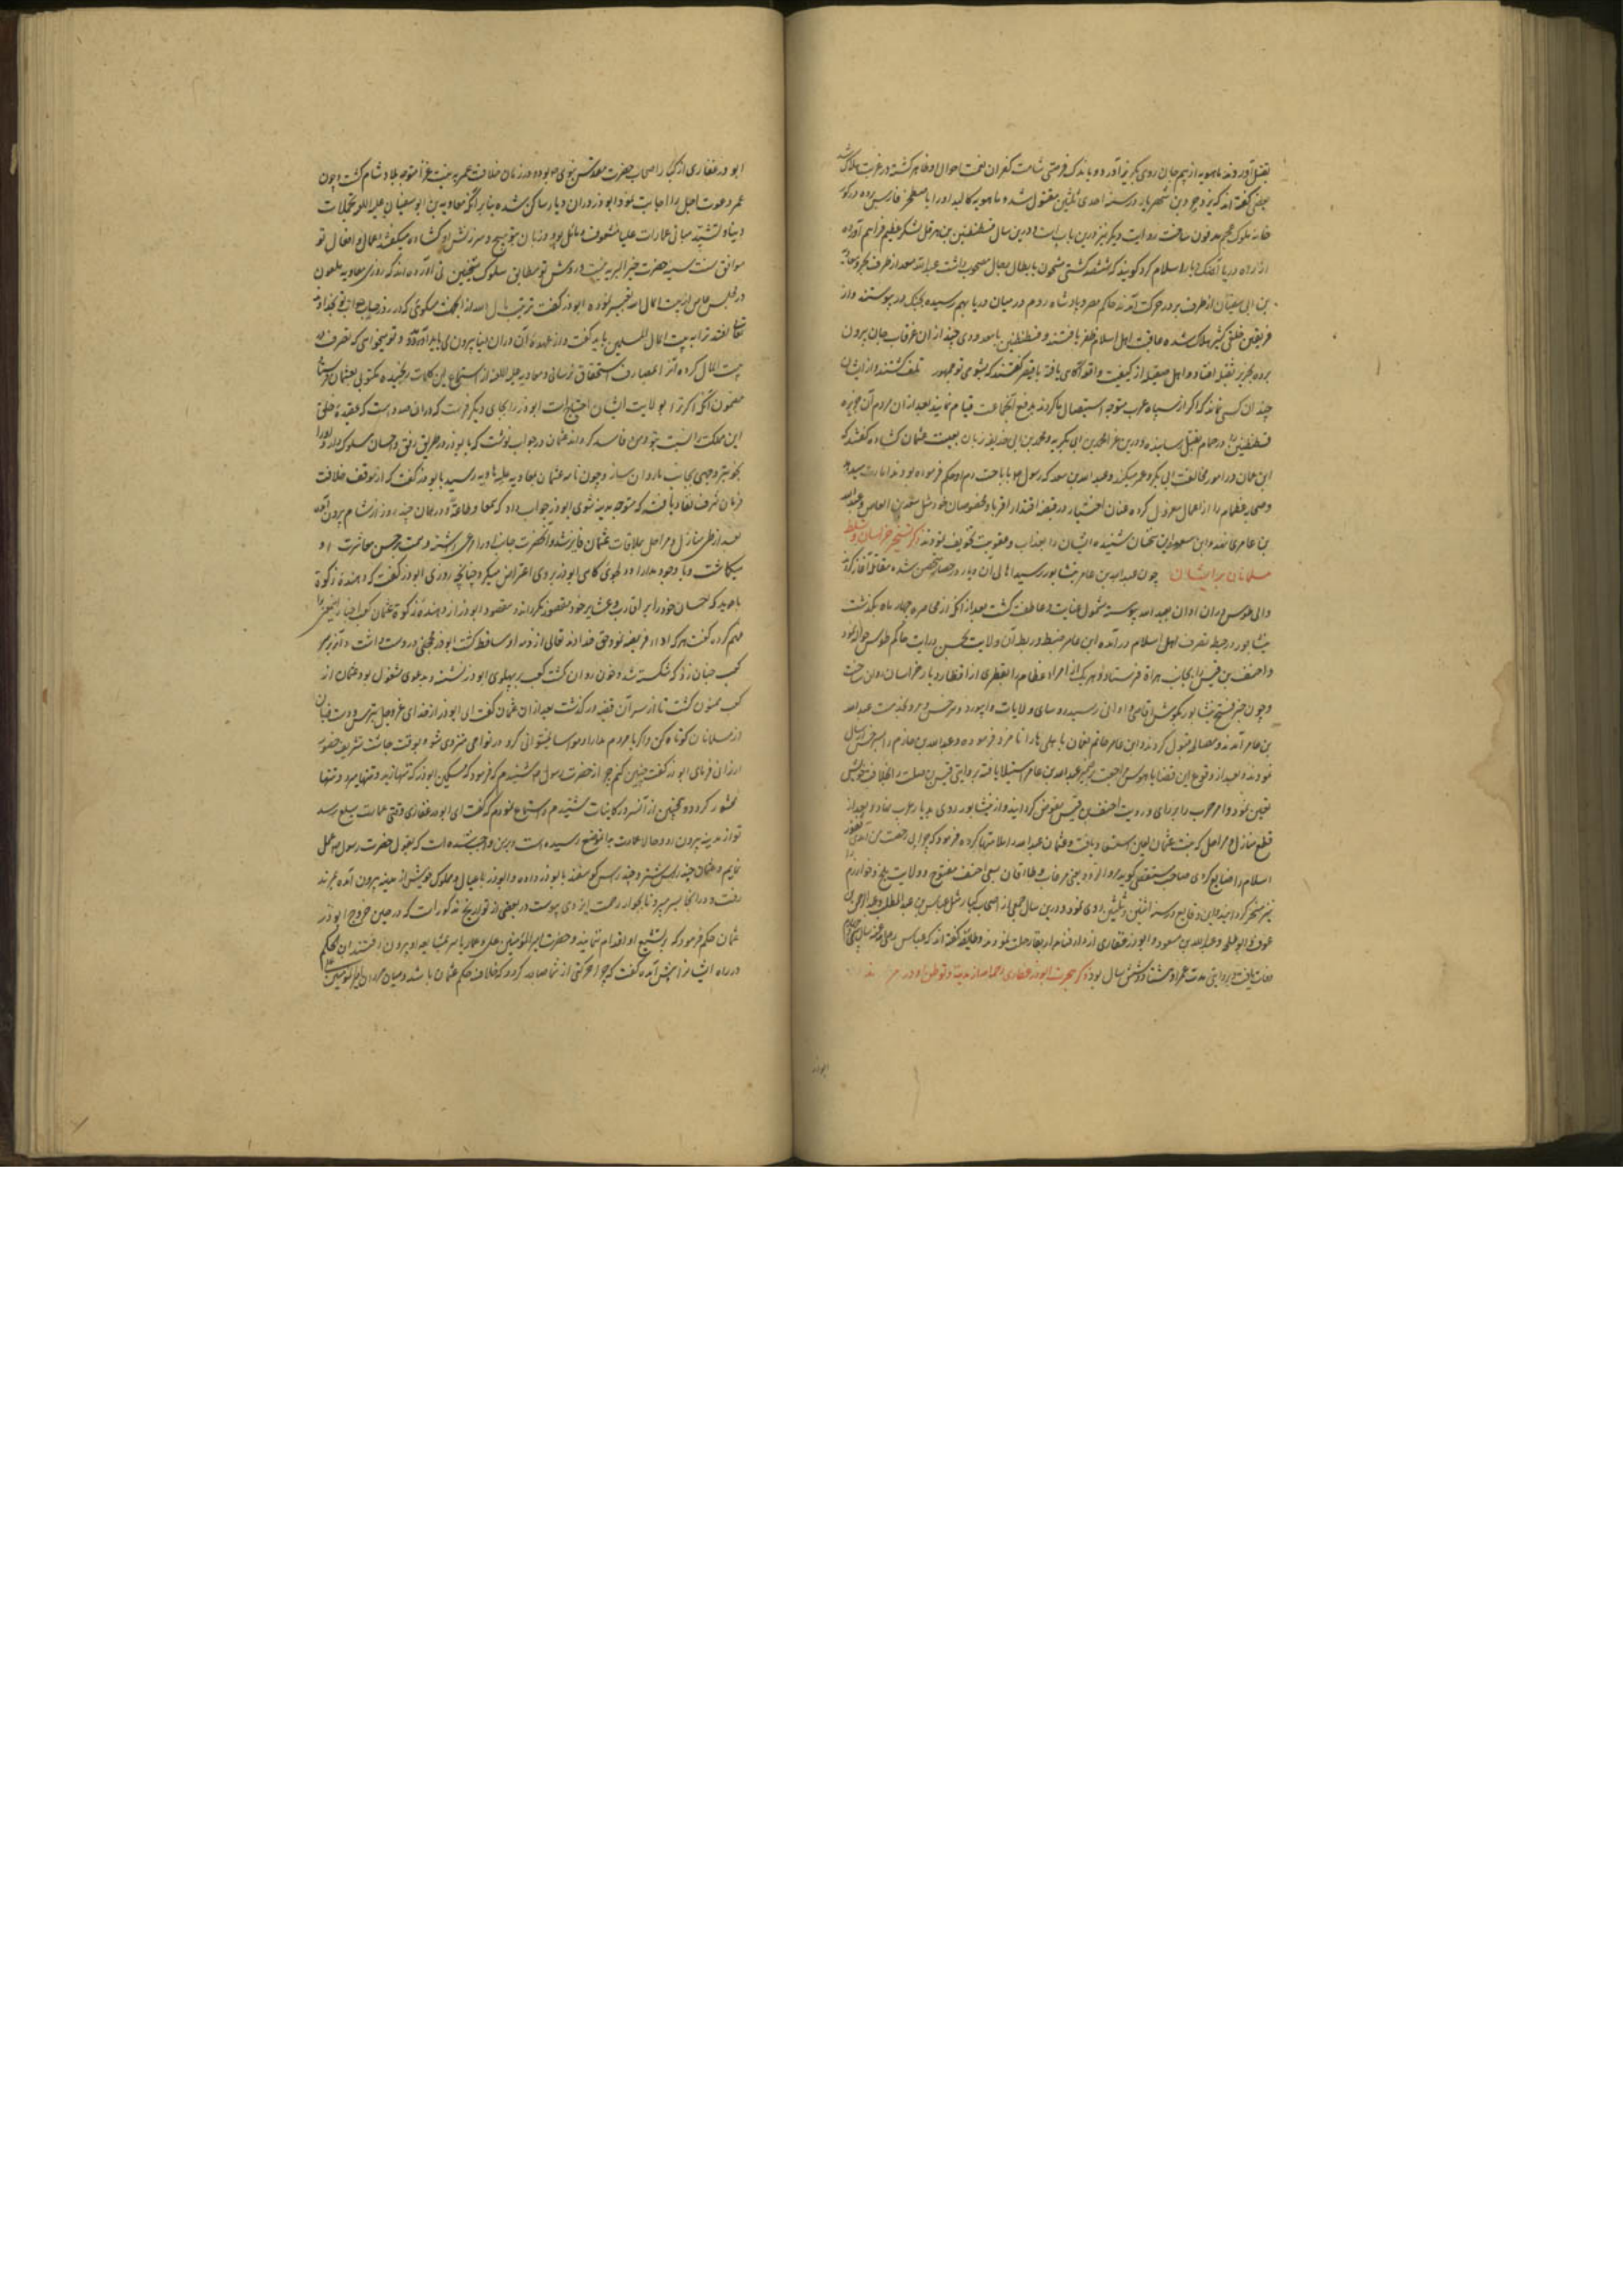 بقتل آوردند ماهویه از بیم جان روی بگریز آورد و باندک فرصتی شامت کفران نعمت احوال او ظاهر کشته در غربت هلاک شد
بعضی کفته‌اند که یزدجرد بن شهریار در سنه احدی ثلثین مقتول شد و ماهویه کالبد او را باصطخر فارس برده در کور
خانه ملوک عجم مدفون ساخت روایت دیکر نیز درین باب است و درین سال قسطنطین بن هرقل لشکر عظیم فراهم آورده
از راه دریا آهنک دیار اسلام کرد کویند که ششصد کشتی مشحون بابطال رجال مصحوب داشت عبدالله سعد از طرف بحر و معاویه
بن ابی سفیان از طرف بر در حرکت آمدند حاکم مصر و پادشاه روم در میان دریا بهم رسیده بجنک در پیوستند و از
فریقین خلقی کثیر هلاک شده عاقبت اهل اسلام ظفر یافتند و قسطنطین با معدودی چند از ان غرقاب جان بیرون
برده بجزیره افتاد و اهل صقلیه از کیفیت واقعه آکاهی یافته با قیصر کفتند که بشومی تو جمهور تلف کشتند و از ایشان
چندان کسی نماند که اکر از سپاه عرب متوجه استیصال ما کردند بدفع آنجماعت قیام نمایند بعد از ان مردم آن جزیره
قسطنطین را در حمام بقتل رسانیده و درین غزا محمد بن ابی بکر و محمد بن ابی حذیفه زبان بعیب عثمان کشاده کفتند که
ابن عفان در امور مخالفت ابی بکر و عمر میکند و عبدالله بن سعد که رسول باباحت دم او حکم فرموده بود بامارت رسید
و صحابه عظام را از اعمال معزول کرده عنان اختیار در قبضه اقتدار اقربا و مخصوصان خود مثل سعید بن العاص و عبدالله
بن عامر نهاد و ابن سعد این سخنان شنیده ایشان را بعذاب و عقوبت تخویف نمود ذکر تسخیر خراسان و تسلط
مسلمانان بر ایشان چون عبدالله بن عامر بنیشابور رسید اهالی آن دیار در حصار متحصن شده مقاتله آغاز کردند
والی طوس در ان اوان بعبدالله پیوسته مشمول عنایت و عاطفت کشت بعد از آنکه زمان محاصره چهار ماه بکذشت
نیشابور در حیطه تصرف اهل اسلام درآمده ابن عامر ضبط و ربط آن ولایت بحسن درایت حاکم طوس حواله نمود
و احنف بن قیس را بجانب هراة فرستاد و هر یک از امراء عظام را بقطری از اقطار دیار خراسان روان ساخت
و چون خبر فتح نیشابور بکوش اقاصی و ادانی رسید روسای ولایات و ابیورد و سرخس و مرو بخدمت عبدالله
بن عامر آمدند و مصالحه قبول کردند و ابن عامر حاتم نعمان باهلی را نامزد فرموده و عبدالله بن حازم را بسرخس ارسال
نمودند و بعد از وقوع این قضایا بطوس مراجعت عبدالله بن عامر استیلا یافته بروایتی قیس بن صلت را بخلافت خویش
تعیین نمود و امر حرب را برای و رویت احنف بن قیس مفوض کردانید و از نیشابور روی بدیار عرب نهاد و بعد از
قطع منازل و مراحل بخدمت عثمان استسعاد یافت و عثمان عبدالله را ملامتها کرده فرمود که چرا بی رخصت من آمدی ثغور
اسلام را ضایع کردی صاحب مستقصی کوید مرو الرود یعنی مرغاب و طالقان بسعی احنف مفتوح و ولایت بلخ و خوارزم
نیز مسخر کردانید این وقایع در سنه اثنین و ثلثین روی نمود و درین سال جمعی از اصحاب کبار مثل عباس بن عبدالمطلب و عبدالرحمن بن
عوف و ابوطلحه و عبدالله بن مسعود و ابوذر غفاری از دار فنا بدار بقا رحلت نمودند و طایفه کفته‌اند که عباس
وفات یافت بروایتی مدت عمر او هشتاد و شش سال بود ذکر هجرت ابوذر غفاری از مدینه و توطن او در
ابوذر غفاری از کبار اصحاب حضرت مقدس نبوی بود و در زمان خلافت عمر به نیت غزا متوجه بلاد شام کشت و چون
عمر دعوت اجل را اجابت نمود ابوذر در ان دیار ساکن شده بنابر آنکه معاویه بن ابوسفیان بتجملات
دنیا و تشیید مبانی عمارات علیا مشعوف و مایل بود و زبان بتوبیخ و سرزنش او کشاده میکفت اعمال و افعال تو
موافق سنت سنیه حضرت خیر البریه نیست و روش تو مطابق سلوک شیخین نی آورده‌اند که روزی معاویه
در مجلس خاص از بیت المال بمال الله تعبیر نمود ابوذر کفت ترتیب مال الله از آنجهت میکوی که در روز حساب جواب تو بخداوند
تعالی افتد ترا بیت المال المسلمین باید کفت و از عهدهٔ آن در ان دنیا بیرون می باید آورد و تو میخواهی که تصرف در
بیت المال کرده آنرا بمصارف استحقاق نرسانی و معاویه از استماع این کلمات رنجیده مکتوبی بعثمان فرستاد
مضمون آنکه اکر ترا بولایت ایشان احتیاج است ابوذر را بجای دیکر فرست که در ان صدد است که عقیده خلق
این مملکت را نسبت بتو و من فاسد کرداند عثمان در جواب نوشت که با ابوذر در طریق رفق و احسان سلوک دار و او را
بخوبتر وجهی بجانب ما روان ساز و چون نامه عثمان بمعاویه رسید با ابوذر کفت که از موقف خلافت
فرمان شرف نفاذ یافته که متوجه مدینه شوی ابوذر جواب داد که سمعا و طاعة و در همان چند روز از شام بیرون آمد
بعد از طی منازل و مراحل بملاقات عثمان فایز شد و آنحضرت جانب او را مرعی داشته و همت بر حسن معاشرت او
میکماشت و با وجود مدارا و دلجوی کاهی ابوذر بروی اعتراض میکرد چنانچه روزی ابوذر کفت که دهندهٔ زکوة
باید که احسان خود را بر اقارب و عشایر خود مقصور نکرداند و مقصود ابوذر از دهندهٔ زکوة عثمان بود کعب احبار
فهم کرده کفت هرکه ادای فریضه نمود حق خداوند تعالی از ذمه او ساقط کشت ابوذر محجنی در دست داشت و آنرا بر سر
کعب چنان زد که شکسته شد و خون روان کشت کعب بر پهلوی ابوذر نشسته و بدعوی مشغول بود عثمان از
کعب ممنون کشت تا از سر آن قضیه درکذشت بعد از ان عثمان کفت ای ابوذر از خدای عز و جل بترس و دست و زبان
از مسلمانان کوتاه کن و اکر با مردم مدارا و مواسا نمیتوانی کرد در نواحی منزوی شو و بوقت حاجت تشریف حضور
ارزانی فرمای ابوذر کفت چنین کنم چرا از حضرت رسول شنیدم که فرمود که مسکین ابوذر که تنها زید و تنها میرد و تنها
محشور کردد و همچنین از آنسرور کاینات شنیدم و استماع نمودم که کفت ای ابوذر غفاری وقتی عمارت بسلع رسد
تو از مدینه بیرون رو و حالا عمارت بدانموضع رسیده است و برمن واجب شده است که بقول حضرت رسول عمل
نمایم و عثمان چند راس شتر و چند راس کوسفند بابوذر داده و ابوذر با عیال و مملوک خویش از مدینه بیرون آمده بربذه
رفت و در آنجا بسر میبرد تا بجوار رحمت ایزدی پیوست در بعضی از تواریخ مذکور است که در حین خروج ابوذر
عثمان حکم فرمود که بتشییع او اقدام ننمایند و حضرت امیرالمؤمنین علی و عمار یاسر بمشایعه او بیرون رفتند ابن الحکم
در راه ایشانرا پیش آمده کفت که چرا حرکتی از شما صادر کردد که خلاف حکم عثمان باشد و میان مروان و امیرالمومنین
ابوذر